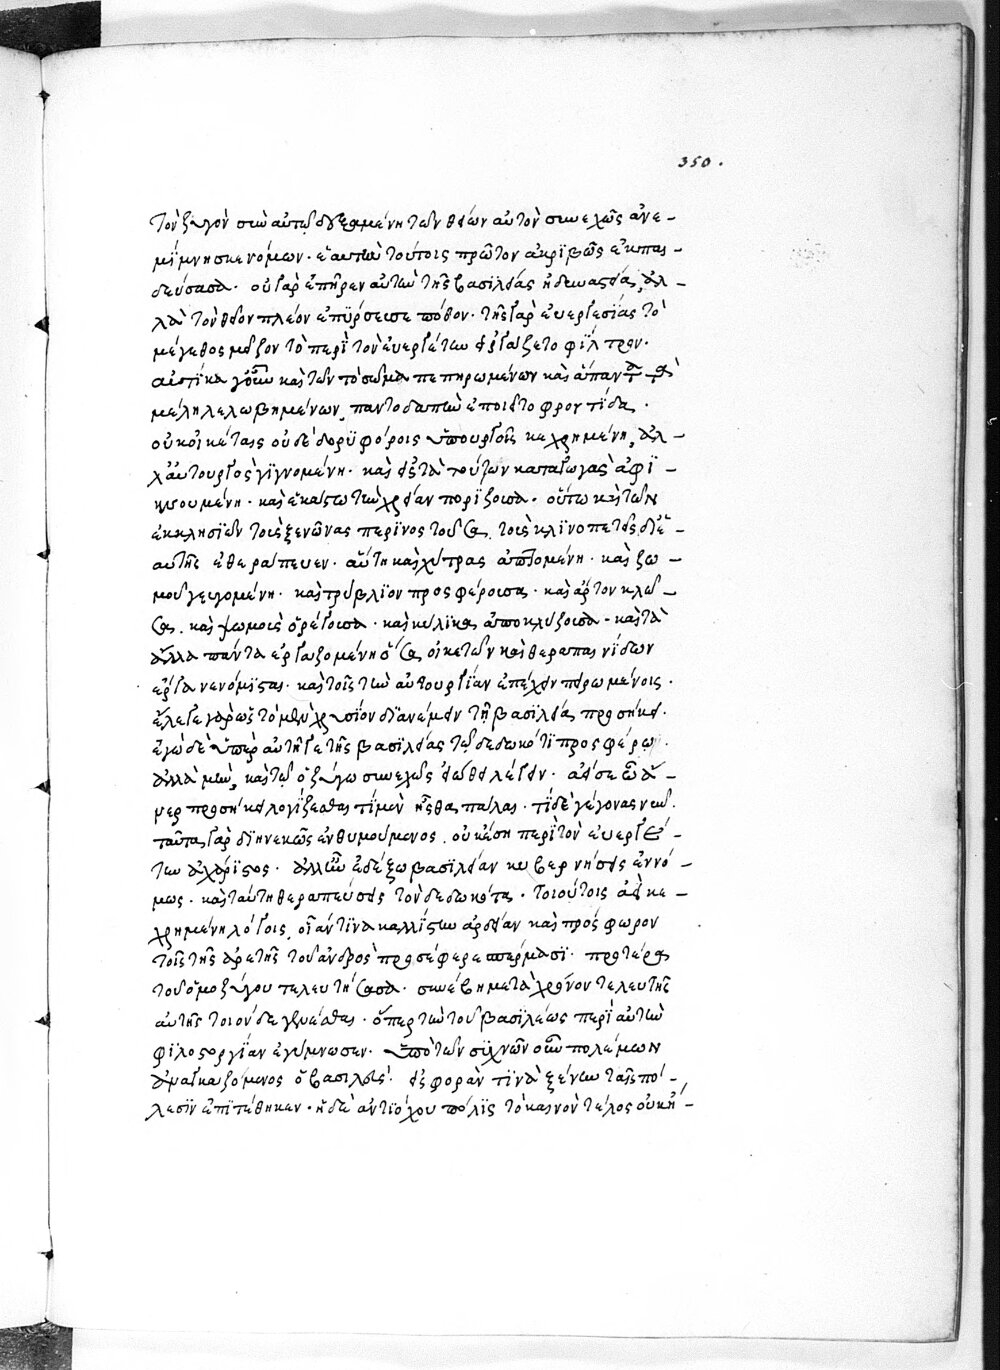 350.
τὸν ξύζυγον σὺν αὐτῷ δυξαμένη τῶν θείων αὐτὸν συνεχῶς ἀνε-
μίμνησκε νόμων. ἑαυτὴν τούτοις πρῶτον ἀκριβῶς ἐκπαι-
δεύσασα. οὐ γὰρ ἐπῆρεν αὐτὴν τῆς βασιλείας ἡ δυναστεία, ἀλ-
λὰ τὸν θεῖον πλέον ἐπύρσευσε πόθον. τῆς γὰρ εὐεργεσίας τὸ
μέγεθος μεῖζον τὸ περὶ τὸν εὐεργέτην εἰργάζετο φίλτρον.
αὐτίκα γοῦν καὶ τῶν τὸ σῶμα πεπηρωμένων καὶ ἅπαντα τὰ
μέλη λελωβημένων, παντοδαπὴν ἐποιεῖτο φροντίδα.
οὐκ οἰκέταις οὐδὲ δορυφόροις ὑπουργοῖς κεχρημένη, ἀλ-
λ' αὐτουργὸς γιγνομένη. καὶ εἰς τὰς τούτων καταγωγὰς ἀφι-
κνουμένη. καὶ ἑκάστω τὴν χρείαν πορίζουσα. οὕτω καὶ τῶν
ἐκκλησιῶν τοὺς ξενῶνας περινοστοῦσα, τοὺς κλινοπετεῖς δι' ἑ-
αυτῆς ἐθεράπευεν. αὕτη καὶ χύτρας ἁπτομένη. καὶ ζω-
μοῦ γευομένη. καὶ τρύβλιον προσφέρουσα. καὶ ἄρτον κλῶ-
σα. καὶ ψωμοὺς ὀρέγουσα. καὶ κύλικα ἀποκλύζουσα. καὶ τὰ
ἄλλα πάντα ἐργαζομένη ὅσα οἰκετῶν καὶ θεραπαινίδων
ἔργα νενόμισται. καὶ τοῖς τὴν αὐτουργίαν ἐπέχειν πειρωμένοις.
ἔλεγε γὰρ ὡς τὸ μὲν χρυσίον διανέμειν τῇ βασιλείᾳ προσήκει.
ἐγὼ δὲ ὑπὲρ αὐτῆς γε τῆς βασιλείας τῷ δεδωκότι προσφέρω.
ἀλλὰ μὴν, καὶ τῷ ὁμοζύγω συνεχῶς εἰώθει λέγειν. ἀεί σε ὦ ἄ-
νερ προσήκει λογίζεσθαι τί μὲν ἦσθα πάλαι. τί δὲ γέγονας νῦν.
ταῦτα γὰρ διηνεκῶς ἐνθυμούμενος, οὐκ ἔση περὶ τὸν εὐεργέ-
την ἀχάριστος. ἀλλ' ἣν ἐδέξω βασιλείαν κυβερνήσεις ἐννό-
μως. καὶ ταύτη θεραπεύσεις τὸν δεδωκότα. τοιούτοις ἀεὶ κε-
χρημένη λόγοις, οἷάν τινα καλλίστην ἀρδείαν καὶ πρόσφορον
τοῖς τῆς ἀρετῆς τοῦ ἀνδρὸς προσέφερε σπέρμασι. προτέρα
τοῦ ὁμοζύγου τελευτήσασα. συνέβη μετὰ χρόνον τελευτῆς
αὐτῆς τοιόνδε γενέσθαι. ὅπερ τὴν τοῦ βασιλέως περὶ αὐτὴν
φιλοστοργίαν ἐγύμνωσεν. ὑπὸ τῶν συχνῶν οὖν πολέμων
ἀναγκαζόμενος ὁ βασιλεὺς. εἰσφοράν τινα ξένην ταῖς πό-
λεσιν ἐπιτέθηκεν. ἡ δὲ ἀντιόχου πόλις τὸ καινὸν τέλος οὐκ ἤ-